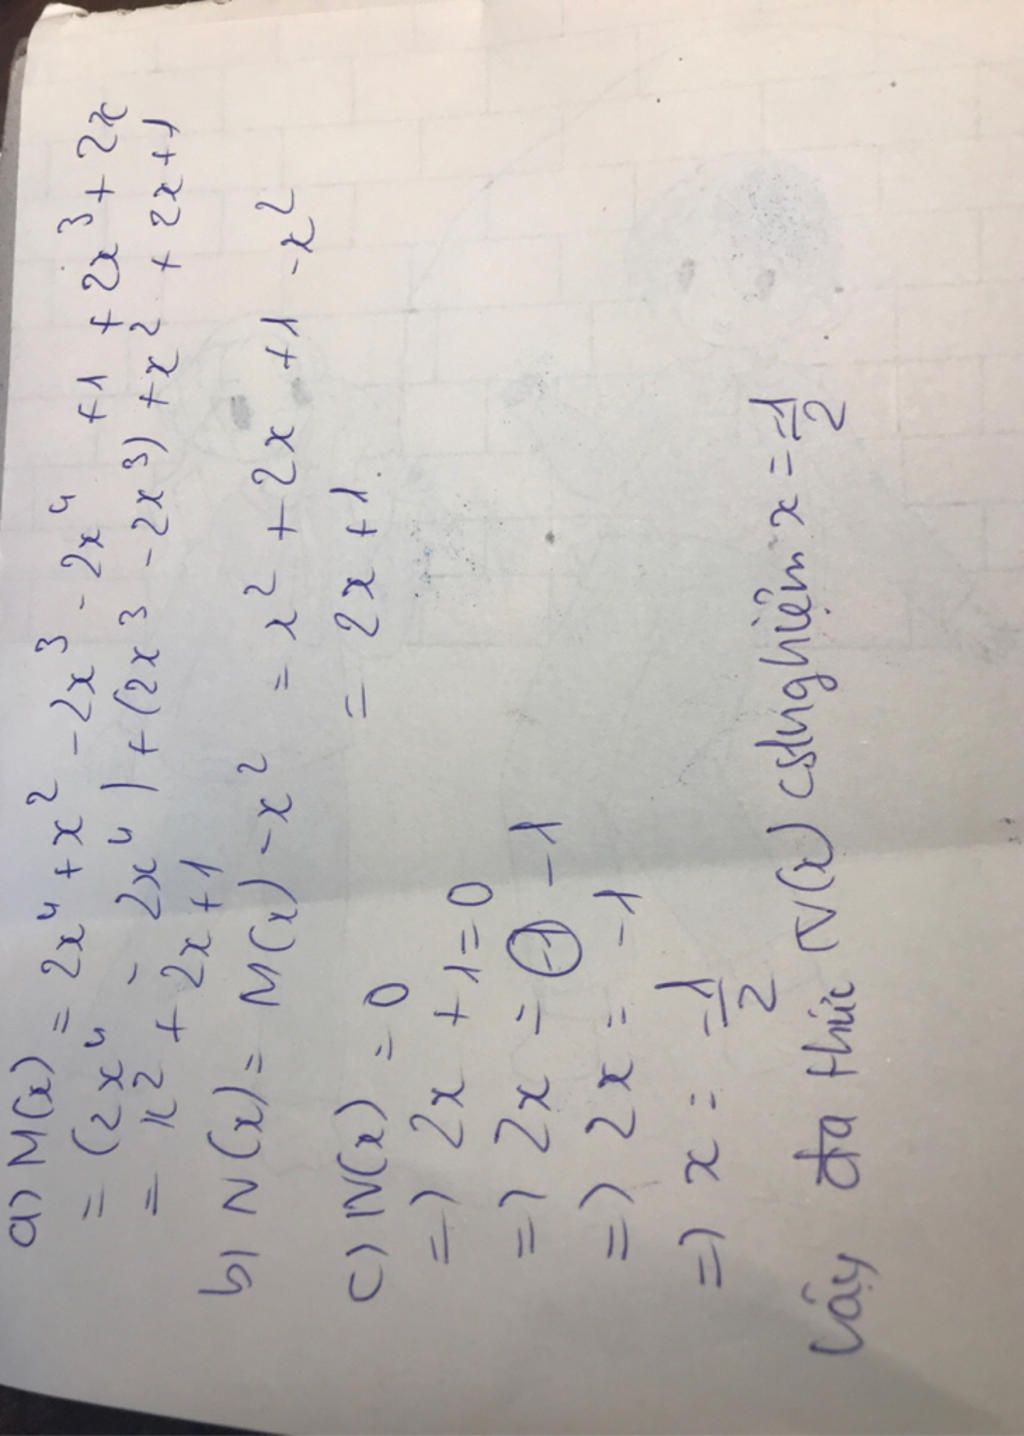 a) M(x) = 2x⁴ + x² - 2x³ - 2x⁴ + 1 + 2x³ + 2x
= (2x⁴ - 2x⁴) + (2x³ - 2x³) + x² + 2x + 1
= x² + 2x + 1
b) N(x) = M(x) - x² = x² + 2x + 1 - x²
= 2x + 1.
c) N(x) = 0
=) 2x + 1 = 0
=) 2x = - 1
=) 2x = -1
=) x = -1/2
Vậy đa thức N(x) có nghiệm x = -1/2